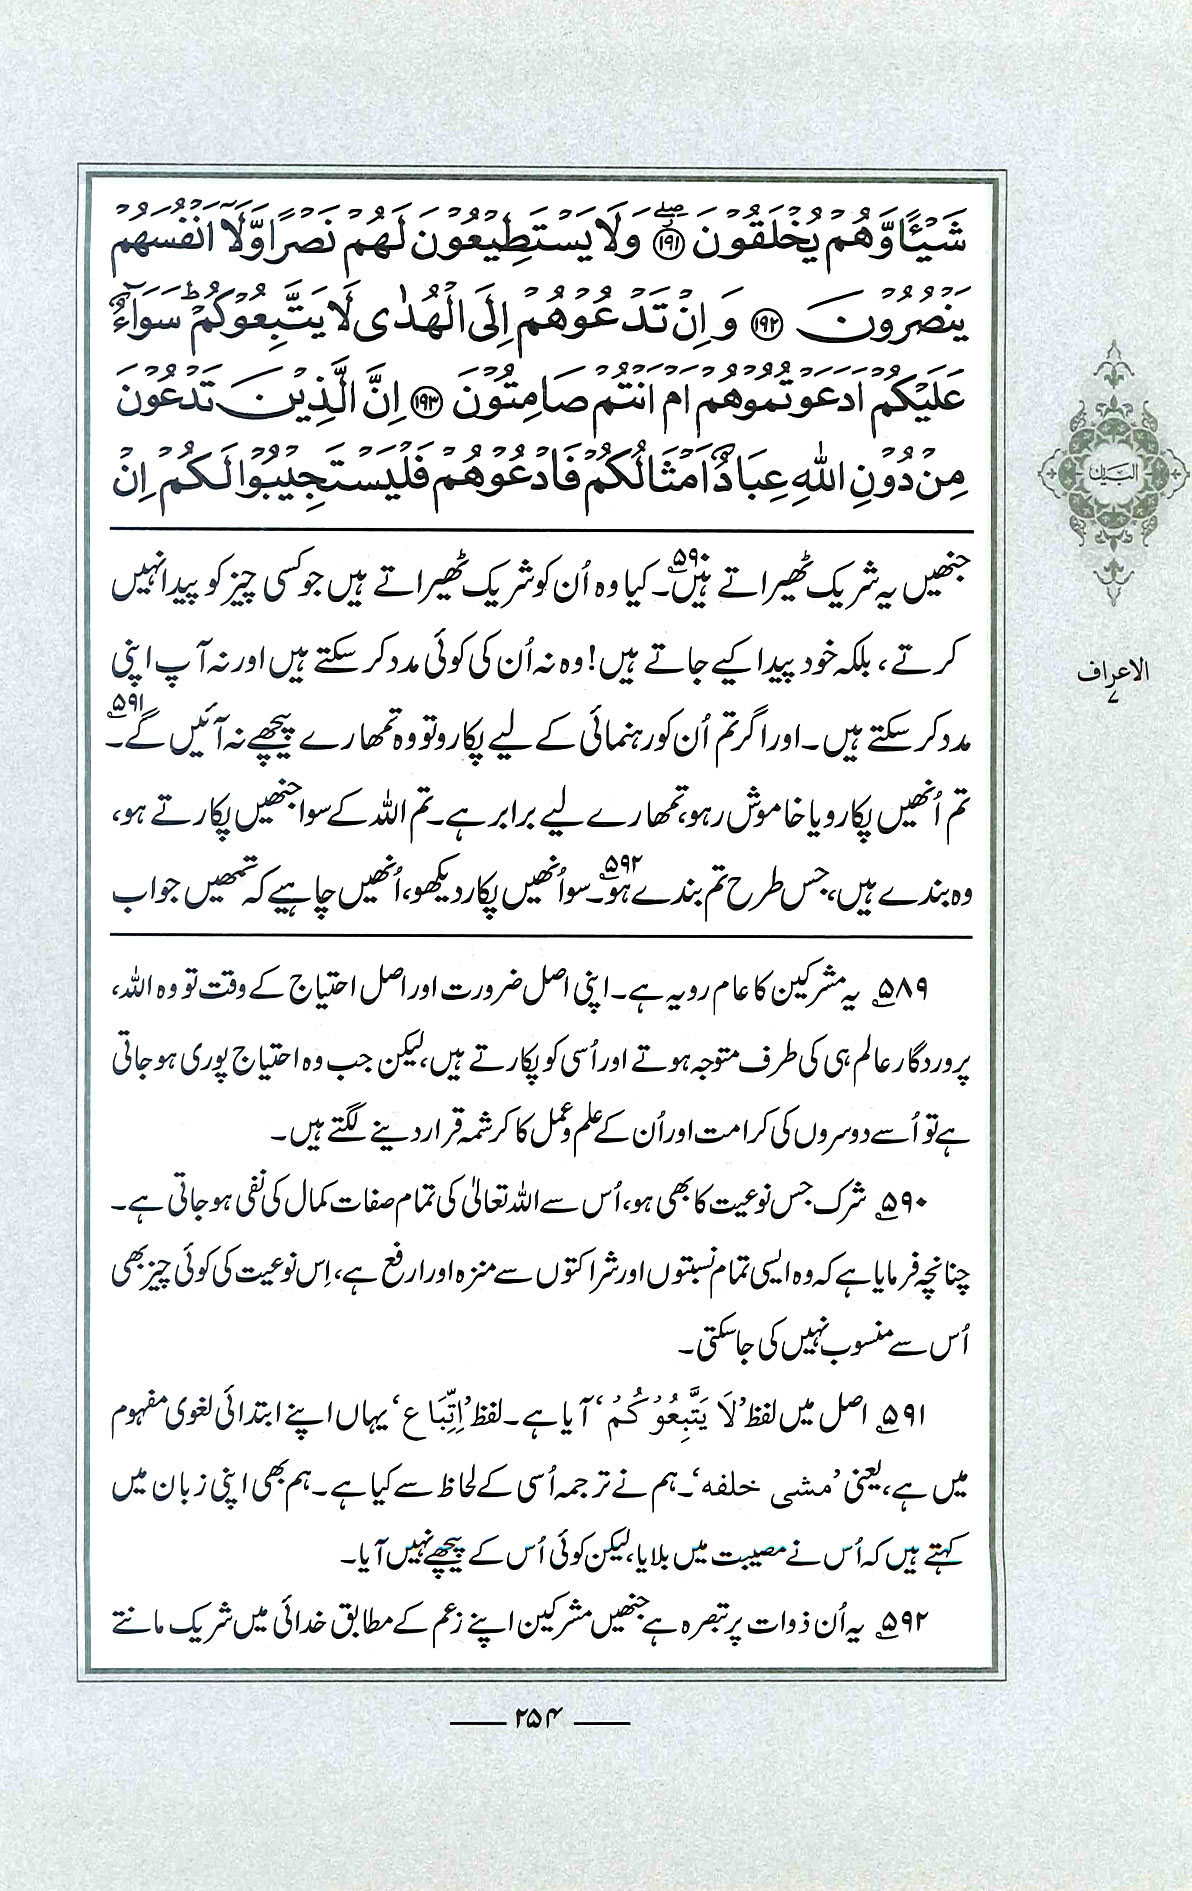 شَيْـًٔا وَّهُمْ يُخْلَقُوْنَ ﴿۱۹۱﴾ۖ وَلَا يَسْتَطِيْعُوْنَ لَهُمْ نَصْرًا وَّلَآ اَنْفُسَهُمْ
يَنْصُرُوْنَ ﴿۱۹۲﴾ وَاِنْ تَدْعُوْهُمْ اِلَى الْهُدٰى لَا يَتَّبِعُوْكُمْ ؕ سَوَآءٌ
عَلَيْكُمْ اَدَعَوْتُمُوْهُمْ اَمْ اَنْتُمْ صَامِتُوْنَ ﴿۱۹۳﴾ اِنَّ الَّذِيْنَ تَدْعُوْنَ
مِنْ دُوْنِ اللّٰهِ عِبَادٌ اَمْثَالُكُمْ فَادْعُوْهُمْ فَلْيَسْتَجِيْبُوْا لَكُمْ اِنْ
جنھیں یہ شریک ٹھیراتے ہیں۔۵۹۰ کیا وہ اُن کو شریک ٹھیراتے ہیں جو کسی چیز کو پیدا نہیں
کرتے، بلکہ خود پیدا کیے جاتے ہیں! وہ نہ اُن کی کوئی مدد کر سکتے ہیں اور نہ آپ اپنی
مدد کر سکتے ہیں۔ اور اگر تم اُن کو رہنمائی کے لیے پکارو تو وہ تمھارے پیچھے نہ آئیں گے۔۵۹۱
تم اُنھیں پکارو یا خاموش رہو، تمھارے لیے برابر ہے۔ تم اللہ کے سوا جنھیں پکارتے ہو،
وہ بندے ہیں، جس طرح تم بندے ہو۔۵۹۲ سو اُنھیں پکار دیکھو، اُنھیں چاہیے کہ تمھیں جواب
۵۸۹ یہ مشرکین کا عام رویہ ہے۔ اپنی اصل ضرورت اور اصل احتیاج کے وقت تو وہ اللہ،
پروردگار عالم ہی کی طرف متوجہ ہوتے اور اُسی کو پکارتے ہیں، لیکن جب وہ احتیاج پوری ہو جاتی
ہے تو اُسے دوسروں کی کرامت اور اُن کے علم و عمل کا کرشمہ قرار دینے لگتے ہیں۔
۵۹۰ شرک جس نوعیت کا بھی ہو، اُس سے اللہ تعالیٰ کی تمام صفات کمال کی نفی ہو جاتی ہے۔
چنانچہ فرمایا ہے کہ وہ ایسی تمام نسبتوں اور شراکتوں سے منزہ اور ارفع ہے، اِس نوعیت کی کوئی چیز بھی
اُس سے منسوب نہیں کی جا سکتی۔
۵۹۱ اصل میں لفظ 'لَا يَتَّبِعُوْكُمْ' آیا ہے۔ لفظ 'اِتِّبَاع' یہاں اپنے ابتدائی لغوی مفہوم
میں ہے، یعنی 'مشی خلفه'۔ ہم نے ترجمہ اُسی کے لحاظ سے کیا ہے۔ ہم بھی اپنی زبان میں
کہتے ہیں کہ اُس نے مصیبت میں بلایا، لیکن کوئی اُس کے پیچھے نہیں آیا۔
۵۹۲ یہ اُن ذوات پر تبصرہ ہے جنھیں مشرکین اپنے زعم کے مطابق خدائی میں شریک مانتے
البیان
الاعراف
۷
۲۵۴